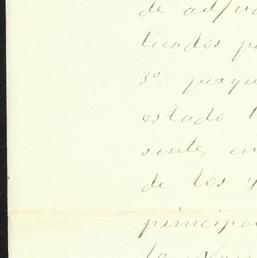 de adju
ticados p
3º porque
estado
sente, en
de los y
principa
la